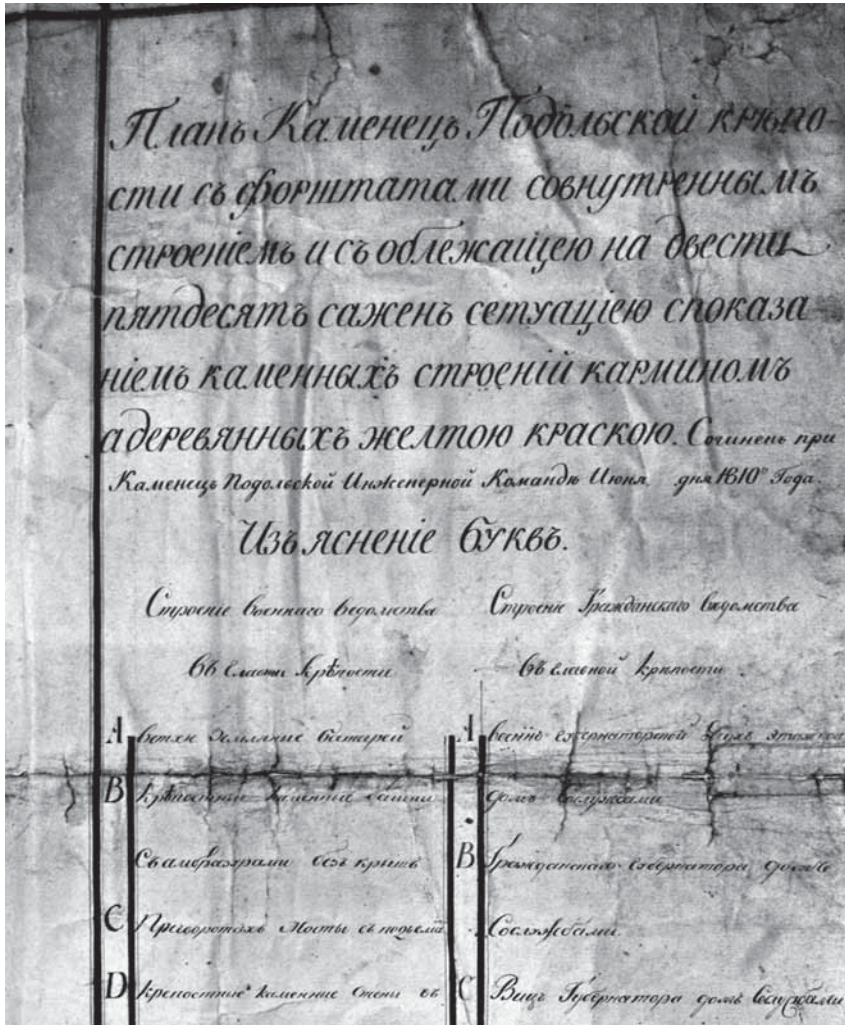 Планъ Каменецъ Подольской крѣпо-
сти съ форштатами совнутреннымъ
строеніемъ и съ облежащею на двести
пятдесятъ саженъ сетуаціею споказа-
ніемъ каменныхъ строеній карминомъ
а деревянныхъ желтою краскою. Сочиненъ при
Каменецъ Подольской Инженерной Командѣ Июня дня 1810го Года.
Изъясненіе буквъ.
Строение военнаго ведомства
Строение Гражданскаго ведомства
въ крѣпости
Въ главной крѣпости
A ветхи Земляние батареи
B крѣпостныи каменние башни
Съ амбразурами безъ крышъ
C При воротахъ Мосты съ подъема
D крепостные каменние стены въ
A военнъ губернаторской двухъ этажной
домъ сослужбами
B Гражданскаго губернатора домъ
Сослужбами.
C Вицъ Губернатора домъ Сослужбами